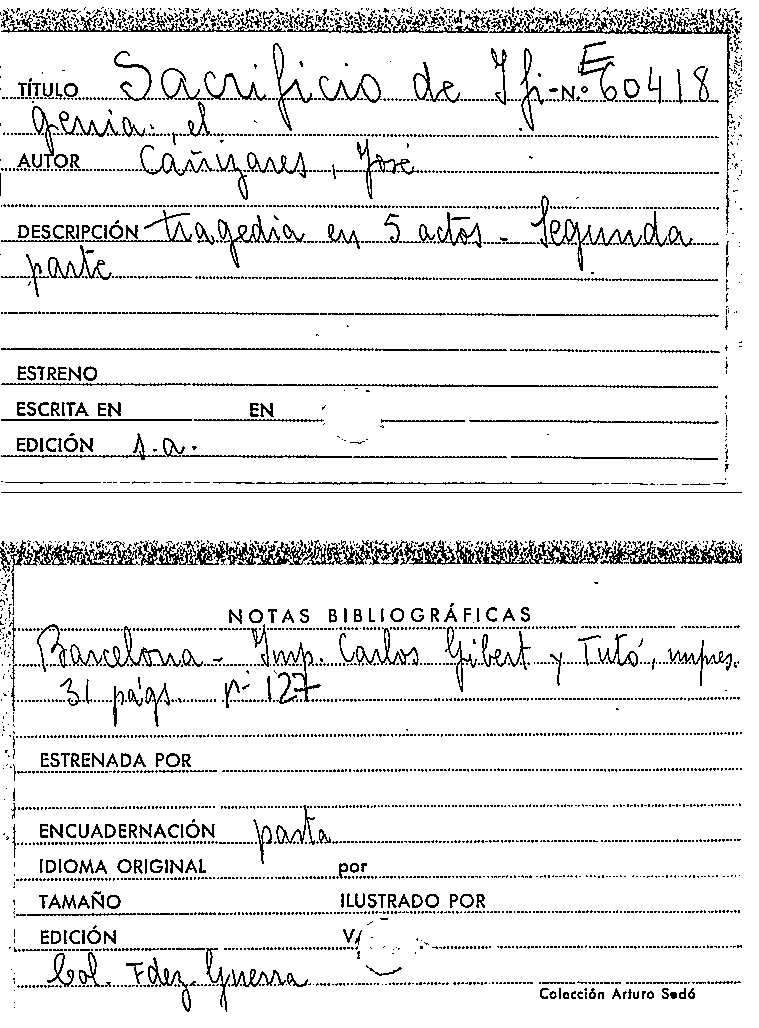 E
TÍTULO Sacrificio de Ifi- N.º 60418
genia, el
AUTOR Cañizares, José
DESCRIPCIÓN tragedia en 5 actos - Segunda
parte
ESTRENO
ESCRITA EN EN
EDICIÓN s.a.
NOTAS BIBLIOGRÁFICAS
Barcelona - Imp. Carlos Gibert y Tutó, impres.
31 págs. nº 127
ESTRENADA POR
ENCUADERNACIÓN pasta
IDIOMA ORIGINAL por
TAMAÑO ILUSTRADO POR
EDICIÓN V/
Col. Fdez. Guerra
Colección Arturo Sedó